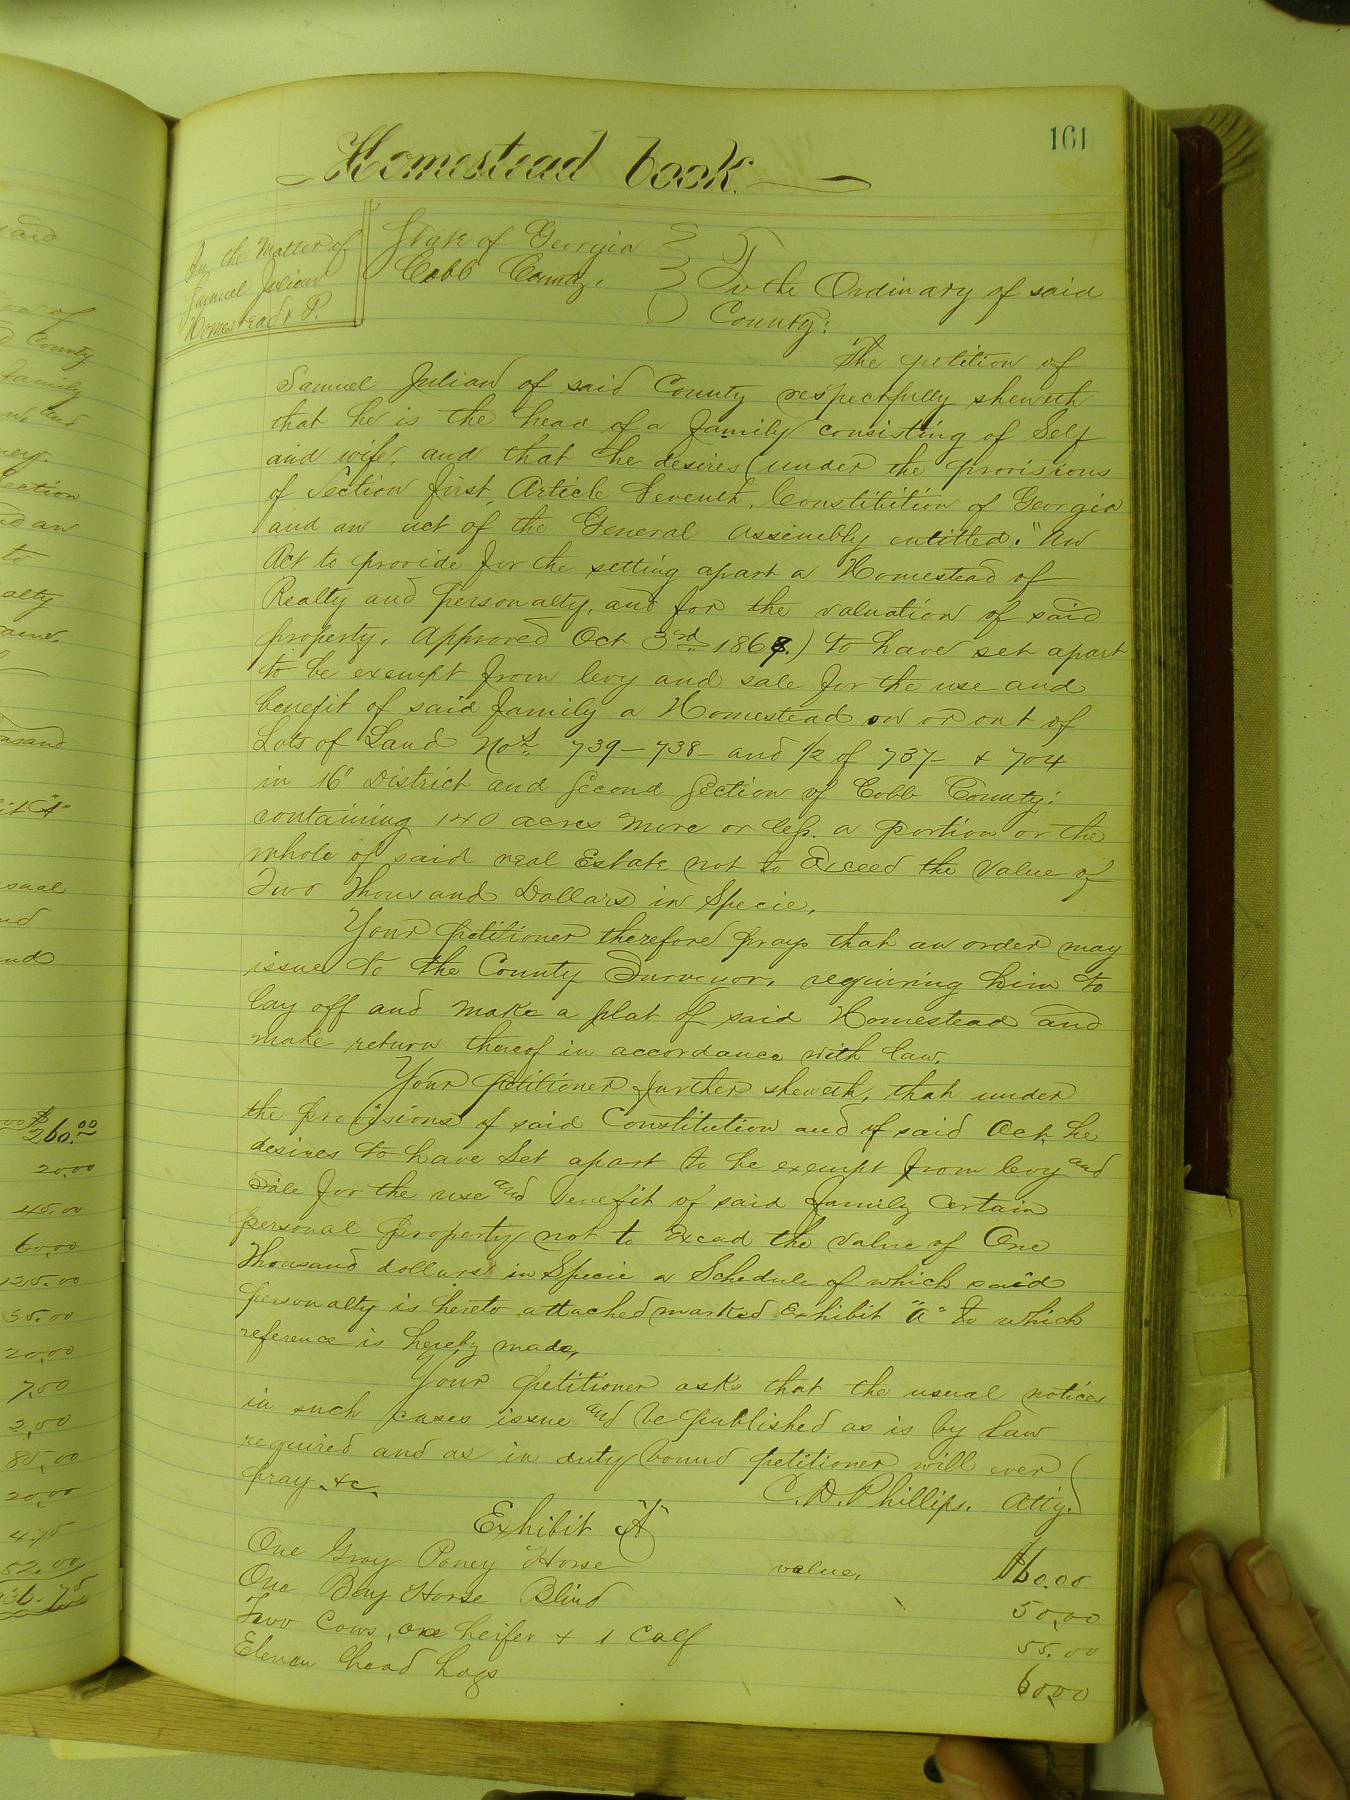 161
Homestead book.
In the Matter of
Samuel Julian
Homestead & P.
State of Georgia
Cobb County.
To the Ordinary of said
County:
The petition of
Samuel Julian of said County respectfully sheweth
that he is the head of a family consisting of Self
and wife, and that he desires (under the provisions
of Section first, Article Seventh, Constitution of Georgia
and an act of the General Assembly entitled. "An
Act to provide for the setting apart a Homestead of
Realty and personalty, and for the valuation of said
property. Approved Oct 3rd 1868.) to have set apart
to be exempt from levy and sale for the use and
benefit of said family a Homestead on or out of
Lots of Land Nos. 739 - 738 - and 1/2 of 737 - & 704
in 16" District and Second Section of Cobb County:
containing 140 acres more or less. a portion or the
whole of said real Estate not to Exceed the value of
Two Thousand Dollars in Specie.
Your petitioner therefore prays that an order may
issue to the County Surveyor, requiring him to
lay off and make a plat of said Homestead and
make return thereof in accordance with law.
Your petitioner further sheweth, that under
the provisions of said Constitution and of said Act, he
desires to have Set apart to be exempt from levy and
Sale for the use and benefit of said family certain
personal property not to Exceed the value of One
Thousand dollars in Specie a Schedule of which said
personalty is hereto attached marked Exhibit "A" to which
reference is hereby made,
Your petitioner asks that the usual notices
in such cases issue and be published as is by law
required and as in duty bound petitioner will ever
pray &c.
C. D. Phillips. Atty.
Exhibit "A"
One Gray Poney Horse value, $60.00
One Bay Horse Blind 50.00
Two Cows, one heifer & 1 calf 55.00
Eleven head hogs 60.00
said
of
County
family
and
Section
and an
to
alty
usual
nd
and
260.00
20.00
45.00
60.00
125.00
35.00
20.00
7.50
2.50
85.00
20.00
4.75
52.00